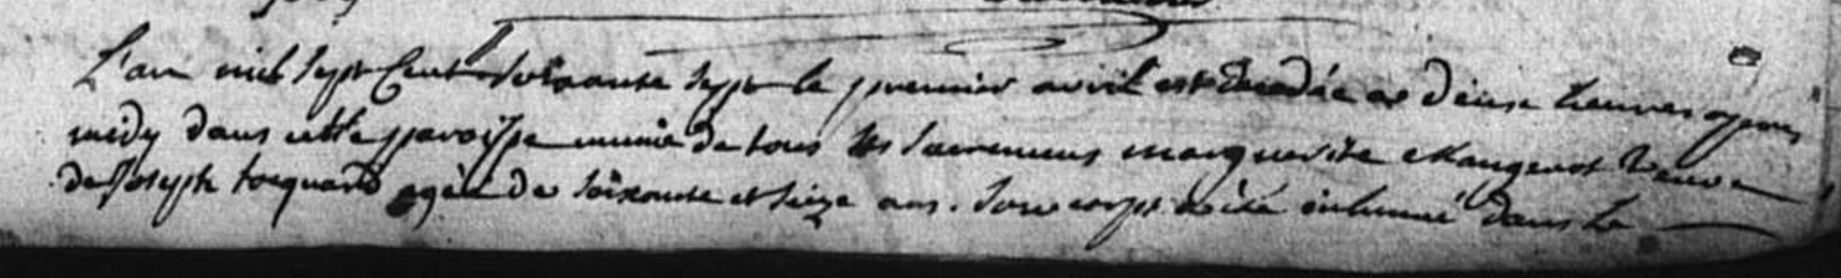 L'an mil sept Cent Soixante sept le premier avril est décédée a deux heures apres
midy dans cette paroisse munie de tous les sacremens marguerite Mangenot Veuve
de Joseph tocquard agée de soixante et seize ans. Son corps a été inhumé dans le